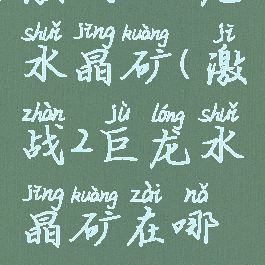 shuǐ jīng kuàng jī
水晶矿(激
zhàn jù lóng shuǐ
战2巨龙水
jīng kuàng zài nǎ
晶矿在哪